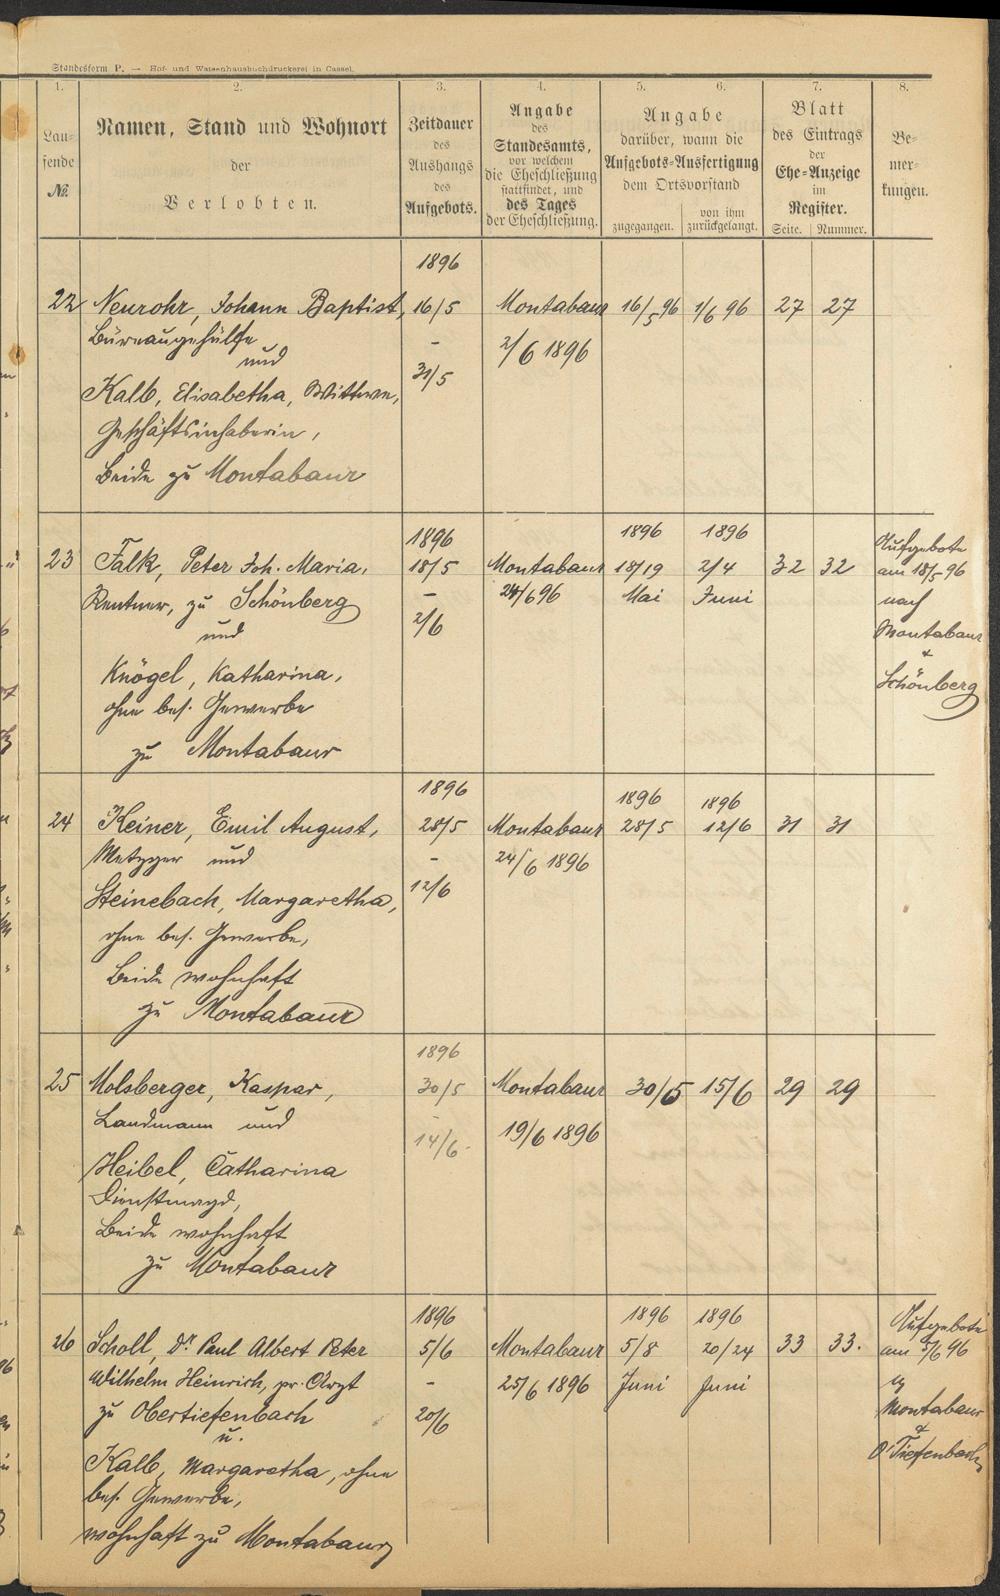 Standesform P. — Hof- und Waisenhausbuchdruckerei in Cassel.
1. 2. 3. 4. 5. 6. 7. 8.
Lau-
fende
№.
Namen, Stand und Wohnort
der
Verlobten.
Zeitdauer
des
Aushangs
des
Aufgebots.
Angabe
des
Standesamts,
vor welchem
die Eheschließung
stattfindet, und
des Tages
der Eheschließung.
Angabe
darüber, wann die
Aufgebots-Ausfertigung
dem Ortsvorstand
zugegangen.
von ihm
zurückgelangt.
Blatt
des Eintrags
der
Ehe-Anzeige
im
Register.
Seite. Nummer.
Be-
mer-
kungen.
1896
22 Neurohr, Johann Baptist, 16/5 Montabaur 16/5 96 1/6 96 27 27
Büreaugehülfe – 2/6 1896
und
31/5
Kalb, Elisabetha, Wittwe,
Geschäftsinhaberin,
beide zu Montabaur
1896 1896 1896 Aufgebote
23 Falk, Peter Joh. Maria, 18/5 Montabaur 18/19 2/4 32 32 am 18/5 96
Rentner, zu Schönberg – 24/6 96 Mai Juni nach
und 2/6 Montabaur
&
Knögel, Katharina, Schönberg
ohne bes. Gewerbe
zu Montabaur
1896 1896 1896
24 Keiner, Emil August, 28/5 Montabaur 28/5 12/6 31 31
Metzger und – 24/6 1896
Steinebach, Margaretha, 12/6
ohne bes. Gewerbe,
beide wohnhaft
zu Montabaur
1896
25 Molsberger, Kaspar, 30/5 Montabaur 30/5 15/6 29 29
Landmann und 14/6. 19/6 1896
Heibel, Catharina
Dienstmagd,
beide wohnhaft
zu Montabaur
1896 1896 1896 Aufgebote
26 Scholl, Dr Paul Albert Peter 5/6 Montabaur 5/8 20/24 33 33. am 5/6 96
Wilhelm Heinrich, pr. Arzt – 25/6 1896 Juni Juni
zu Obertiefenbach 20/6 Montabaur
u. &
Kalb, Margaretha, ohne O'Tiefenbach
bes. Gewerbe,
wohnhaft zu Montabaur